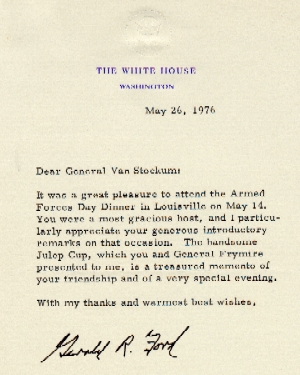 THE WHITE HOUSE
WASHINGTON
May 26, 1976
Dear General Van Stockum:
It was a great pleasure to attend the Armed
Forces Day Dinner in Louisville on May 14.
You were a most gracious host, and I particu-
larly appreciate your generous introductory
remarks on that occasion. The handsome
Julep Cup, which you and General Frymire
presented to me, is a treasured memento of
your friendship and of a very special evening.
With my thanks and warmest best wishes,
Gerald R. Ford